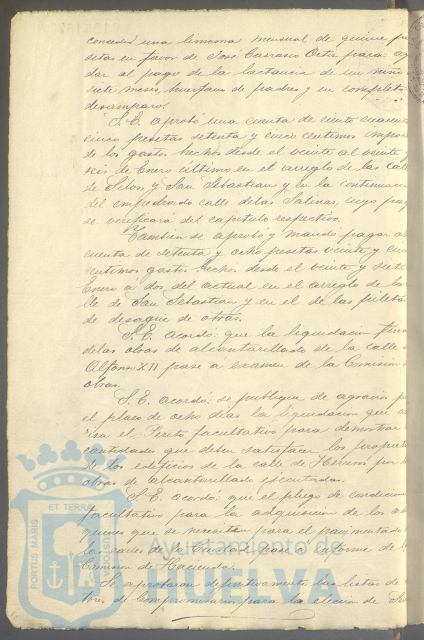 concedió una limosna mensual de quince pe
setas en favor de José Carrasco Ortiz para ay
dar al pago de la lactancia de un niño
siete meses, huerfano de padres y en completo
desamparo.
S. E. aprobó una cuenta de ciento cuarenta
cinco pesetas setenta y cinco centimos impor
de los gastos hechos desde el veinte al veinte
seis de Enero último en el arreglo de las call
de Silos y San Sebastian y en la continuaci
del empedrado calle de las Salinas, cuyo pag
se verificará del capitulo respectivo.
Tambien se aprobó y mandó pagar la
cuenta de setenta y ocho pesetas veinte y cin
centimos gastos hechos desde el veinte y siete
Enero á dos del actual en el arreglo de la
lle de San Sebastian y en el de las
de desague de otras.
S. E. acordó: que la liquidacion final
de las obras de alcantarillado de la calle
Alfonso XII pase a examen de la Comision
obras.
S. E. acordó: se publique de agravios por
el plazo de ocho dias la liquidacion que
el Perito facultativo para demostrar
cantidades que deben satisfacer los propiet
de los edificios de la calle de Herreros por
obras de alcantarillado ejecutadas.
S. E. acordó: que el pliego de condicion
facultativo para la adquisicion de los ado
quines que se necesitan para el pavimentado
la calle de pase a informe de l
Comision de Hacienda.
Se aprobaron definitivamente las listas de
tores de Compromisarios para la eleccion de Sen
PORTUS MARIS
ET TERRÆ
CUSTODIA
Ayuntamiento de
HUELVA